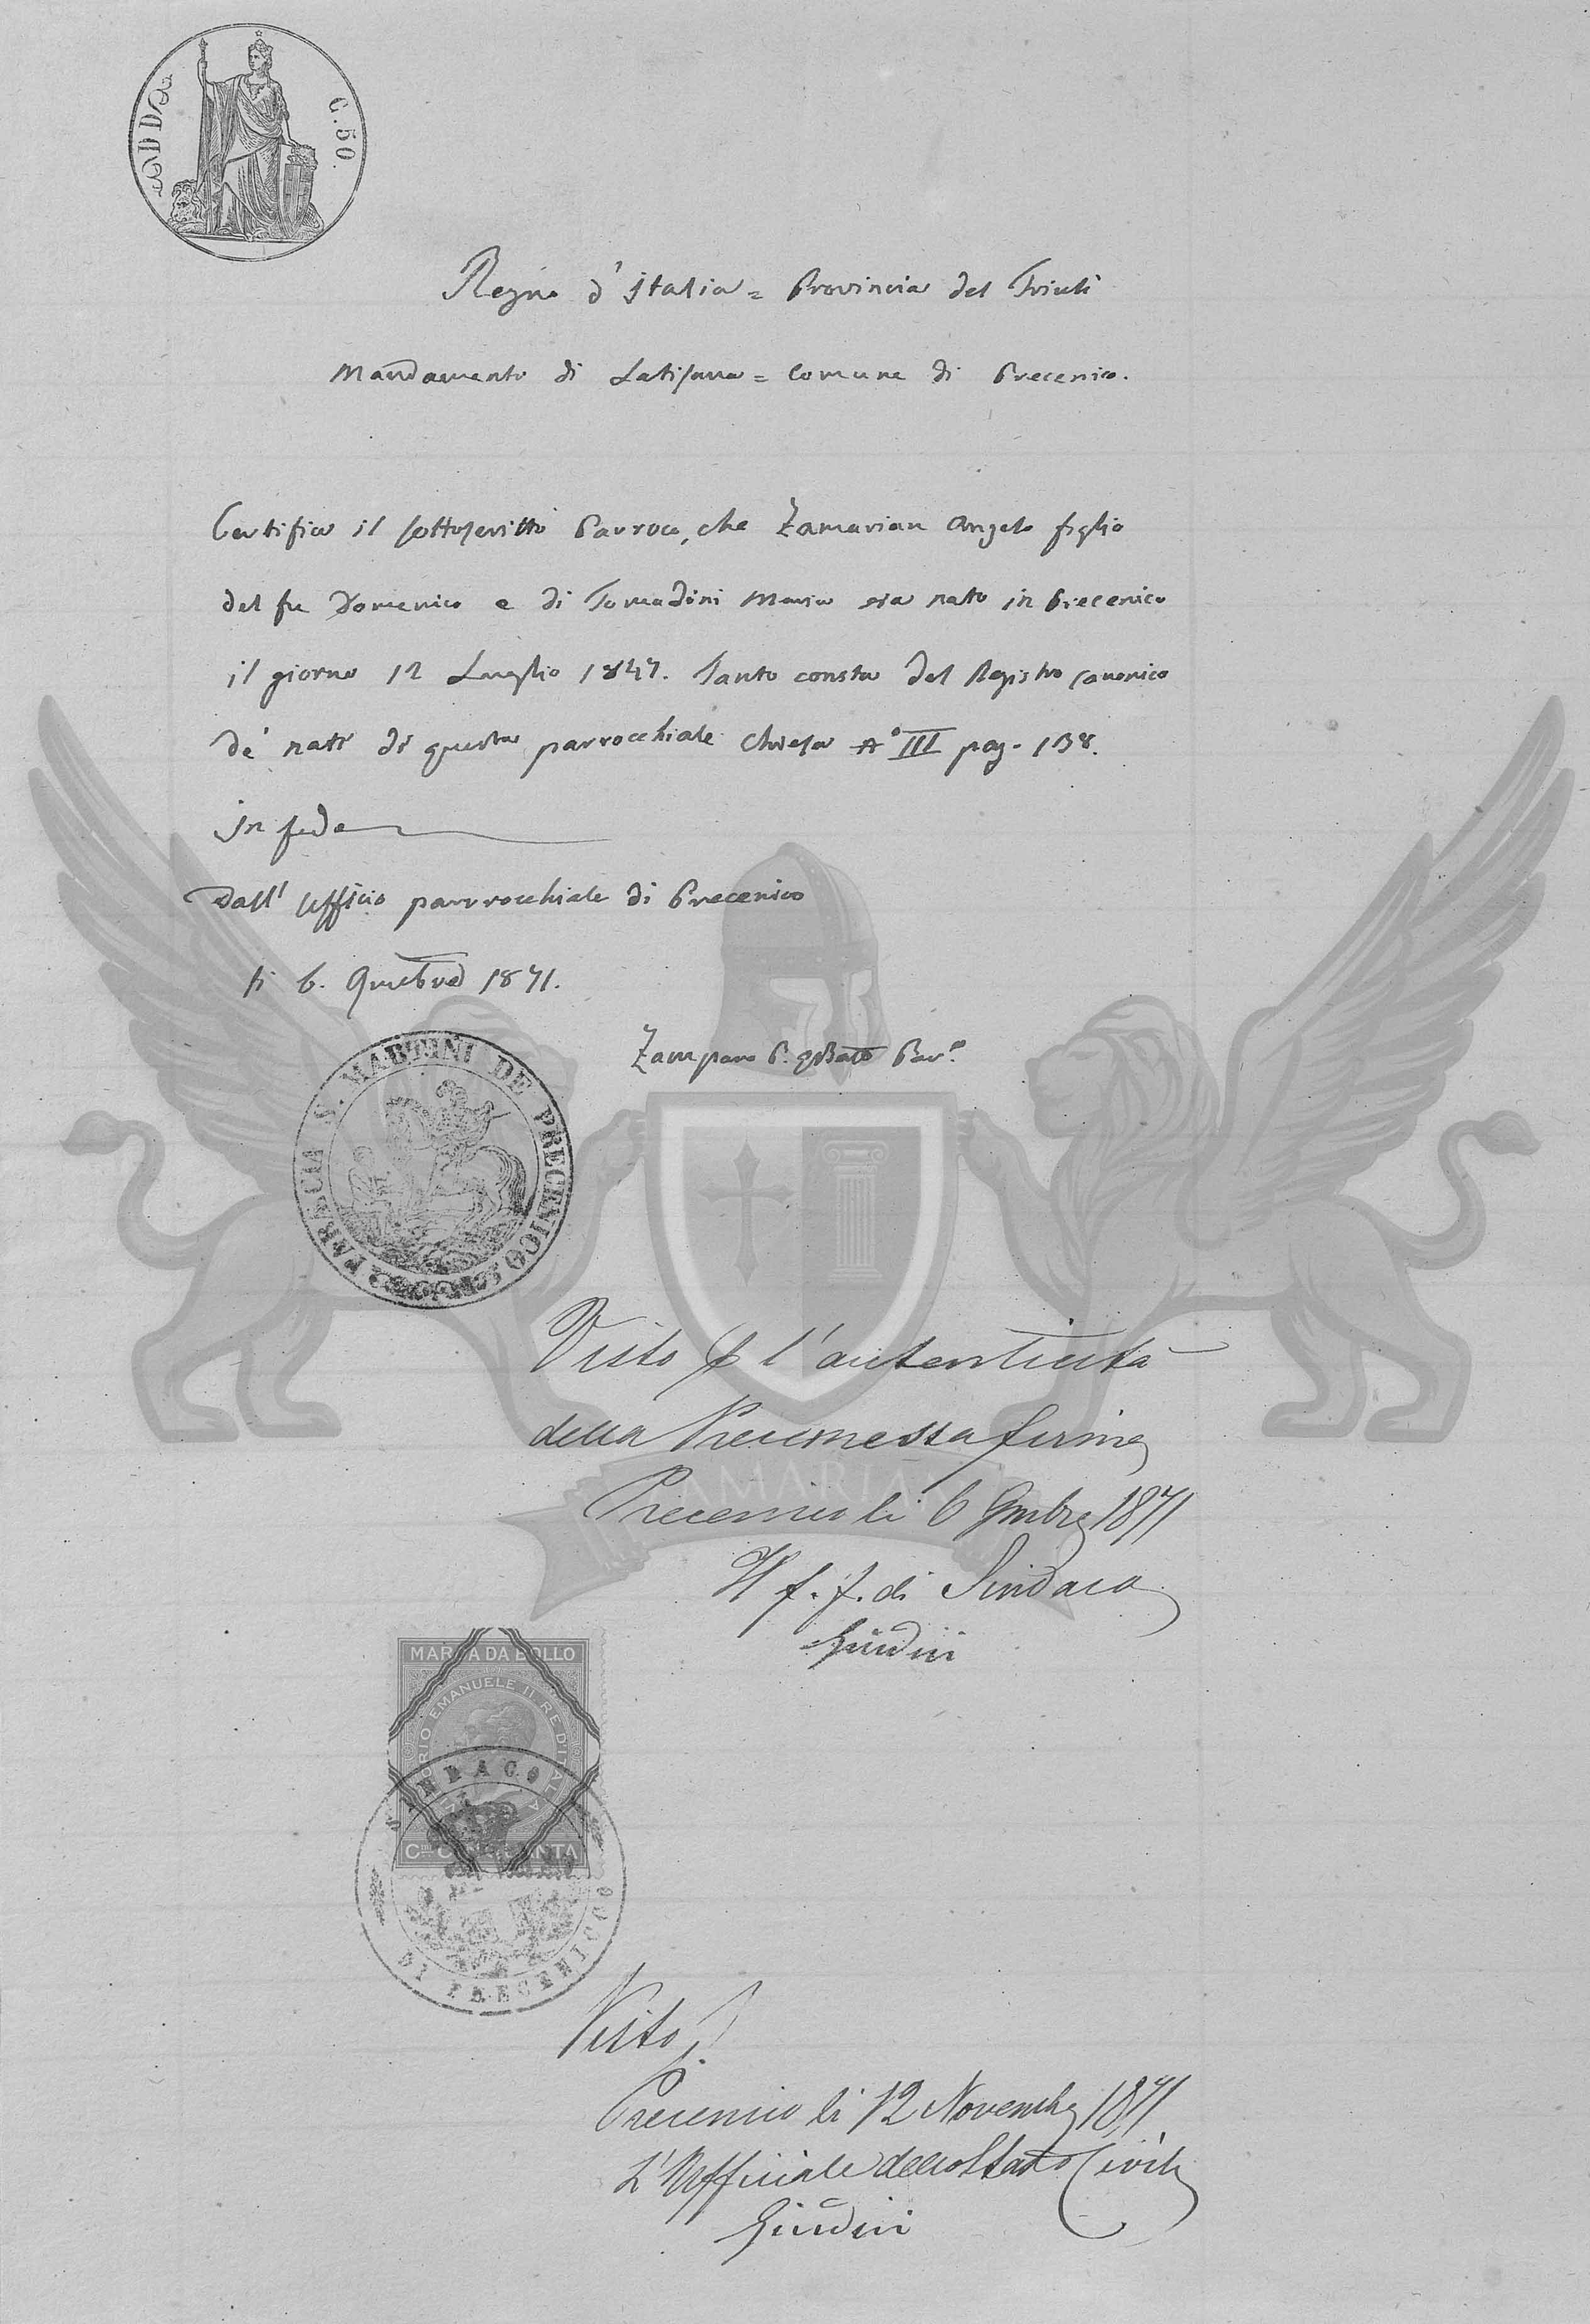 C. 50.
Regno d'Italia = Provincia del Friuli
Mandamento di Latisana = Comune di Precenico.
Certifica il sottoscritto Parroco, che Zamarian Angelo figlio
del fu Domenico e di Tomadini Maria sia nato in Precenico
il giorno 12 Luglio 1847. Tanto consta dal Registro canonico
de' nati di questa parrocchiale Chiesa III pag. 138.
In fede
Dall' Ufficio parrocchiale di Precenico
li 6. 9mebre 1871.
Zamparo P. Par.o
S. MARTINI DE PRECENICO
Visto p l'autenticità
della Premessa firma
Precenico li 6 9mbre 1871
Il f.f. di Sindaco
MARCA DA BOLLO
VITTORIO EMANUELE II RE D'ITALIA
C.MI CINQUANTA
SINDACO
DI PRECENICCO
Visto
Precenico li 12 Novembre 1871
L'Ufficiale dello Stato Civile